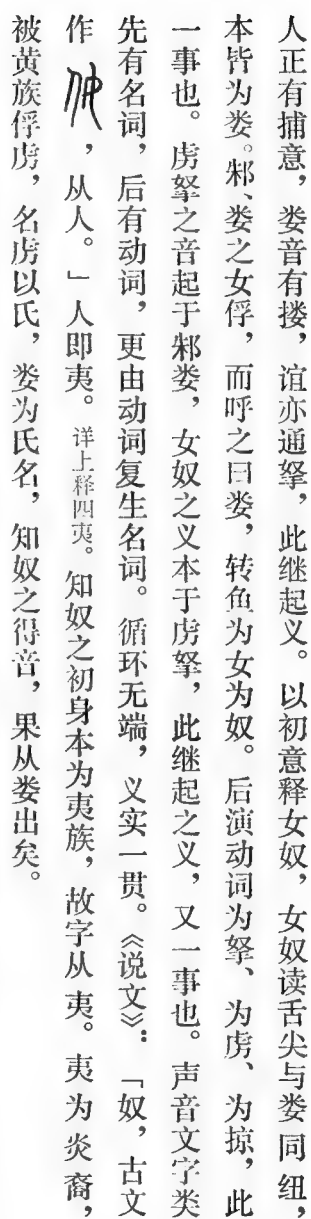 人正有捕意，娄音有搂，谊亦通拏，此继起义。以初意释女奴，女奴读舌尖与娄同纽，
本皆为娄。邾、娄之女俘，而呼之曰娄，转鱼为女为奴。后演动词为拏、为虏、为掠，此
一事也。虏拏之音起于邾娄，女奴之义本于虏拏，此继起之义，又一事也。声音文字类
先有名词，后有动词，更由动词复生名词。循环无端，义实一贯。《说文》：「奴，古文
作㚢，从人。」人即夷。详上释四夷。知奴之初身本为夷族，故字从夷。夷为炎裔，
被黄族俘虏，名虏以氏，娄为氏名，知奴之得音，果从娄出矣。